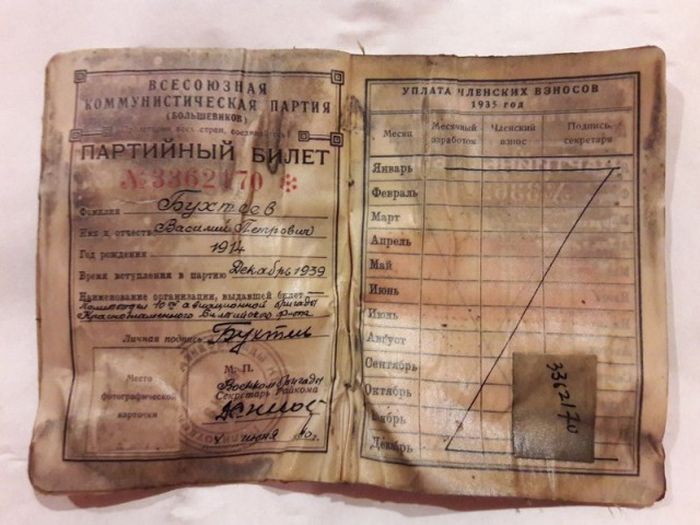 ВСЕСОЮЗНАЯ
КОММУНИСТИЧЕСКАЯ ПАРТИЯ
(БОЛЬШЕВИКОВ)
всех стран, соединяйтесь!
ПАРТИЙНЫЙ БИЛЕТ
№3362170 *
Фамилия Бухтеев
Имя и отчество Василий Петрович
Год рождения 1914
Время вступления в партию Декабрь 1939
Наименование организации, выдавшей билет
10ой авиационной бригады
Краснознаменного Балтийского флота
Личная подпись
М. П.
Военком бригады
Секретарь Райкома
июня
Место
фотографической
карточки
УПЛАТА ЧЛЕНСКИХ ВЗНОСОВ
1935 год
Месяц Месячный заработок Членский взнос Подпись секретаря
Январь
Февраль
Март
Апрель
Май
Июнь
Июль
Август
Сентябрь
Октябрь
Ноябрь
Декабрь
3362170